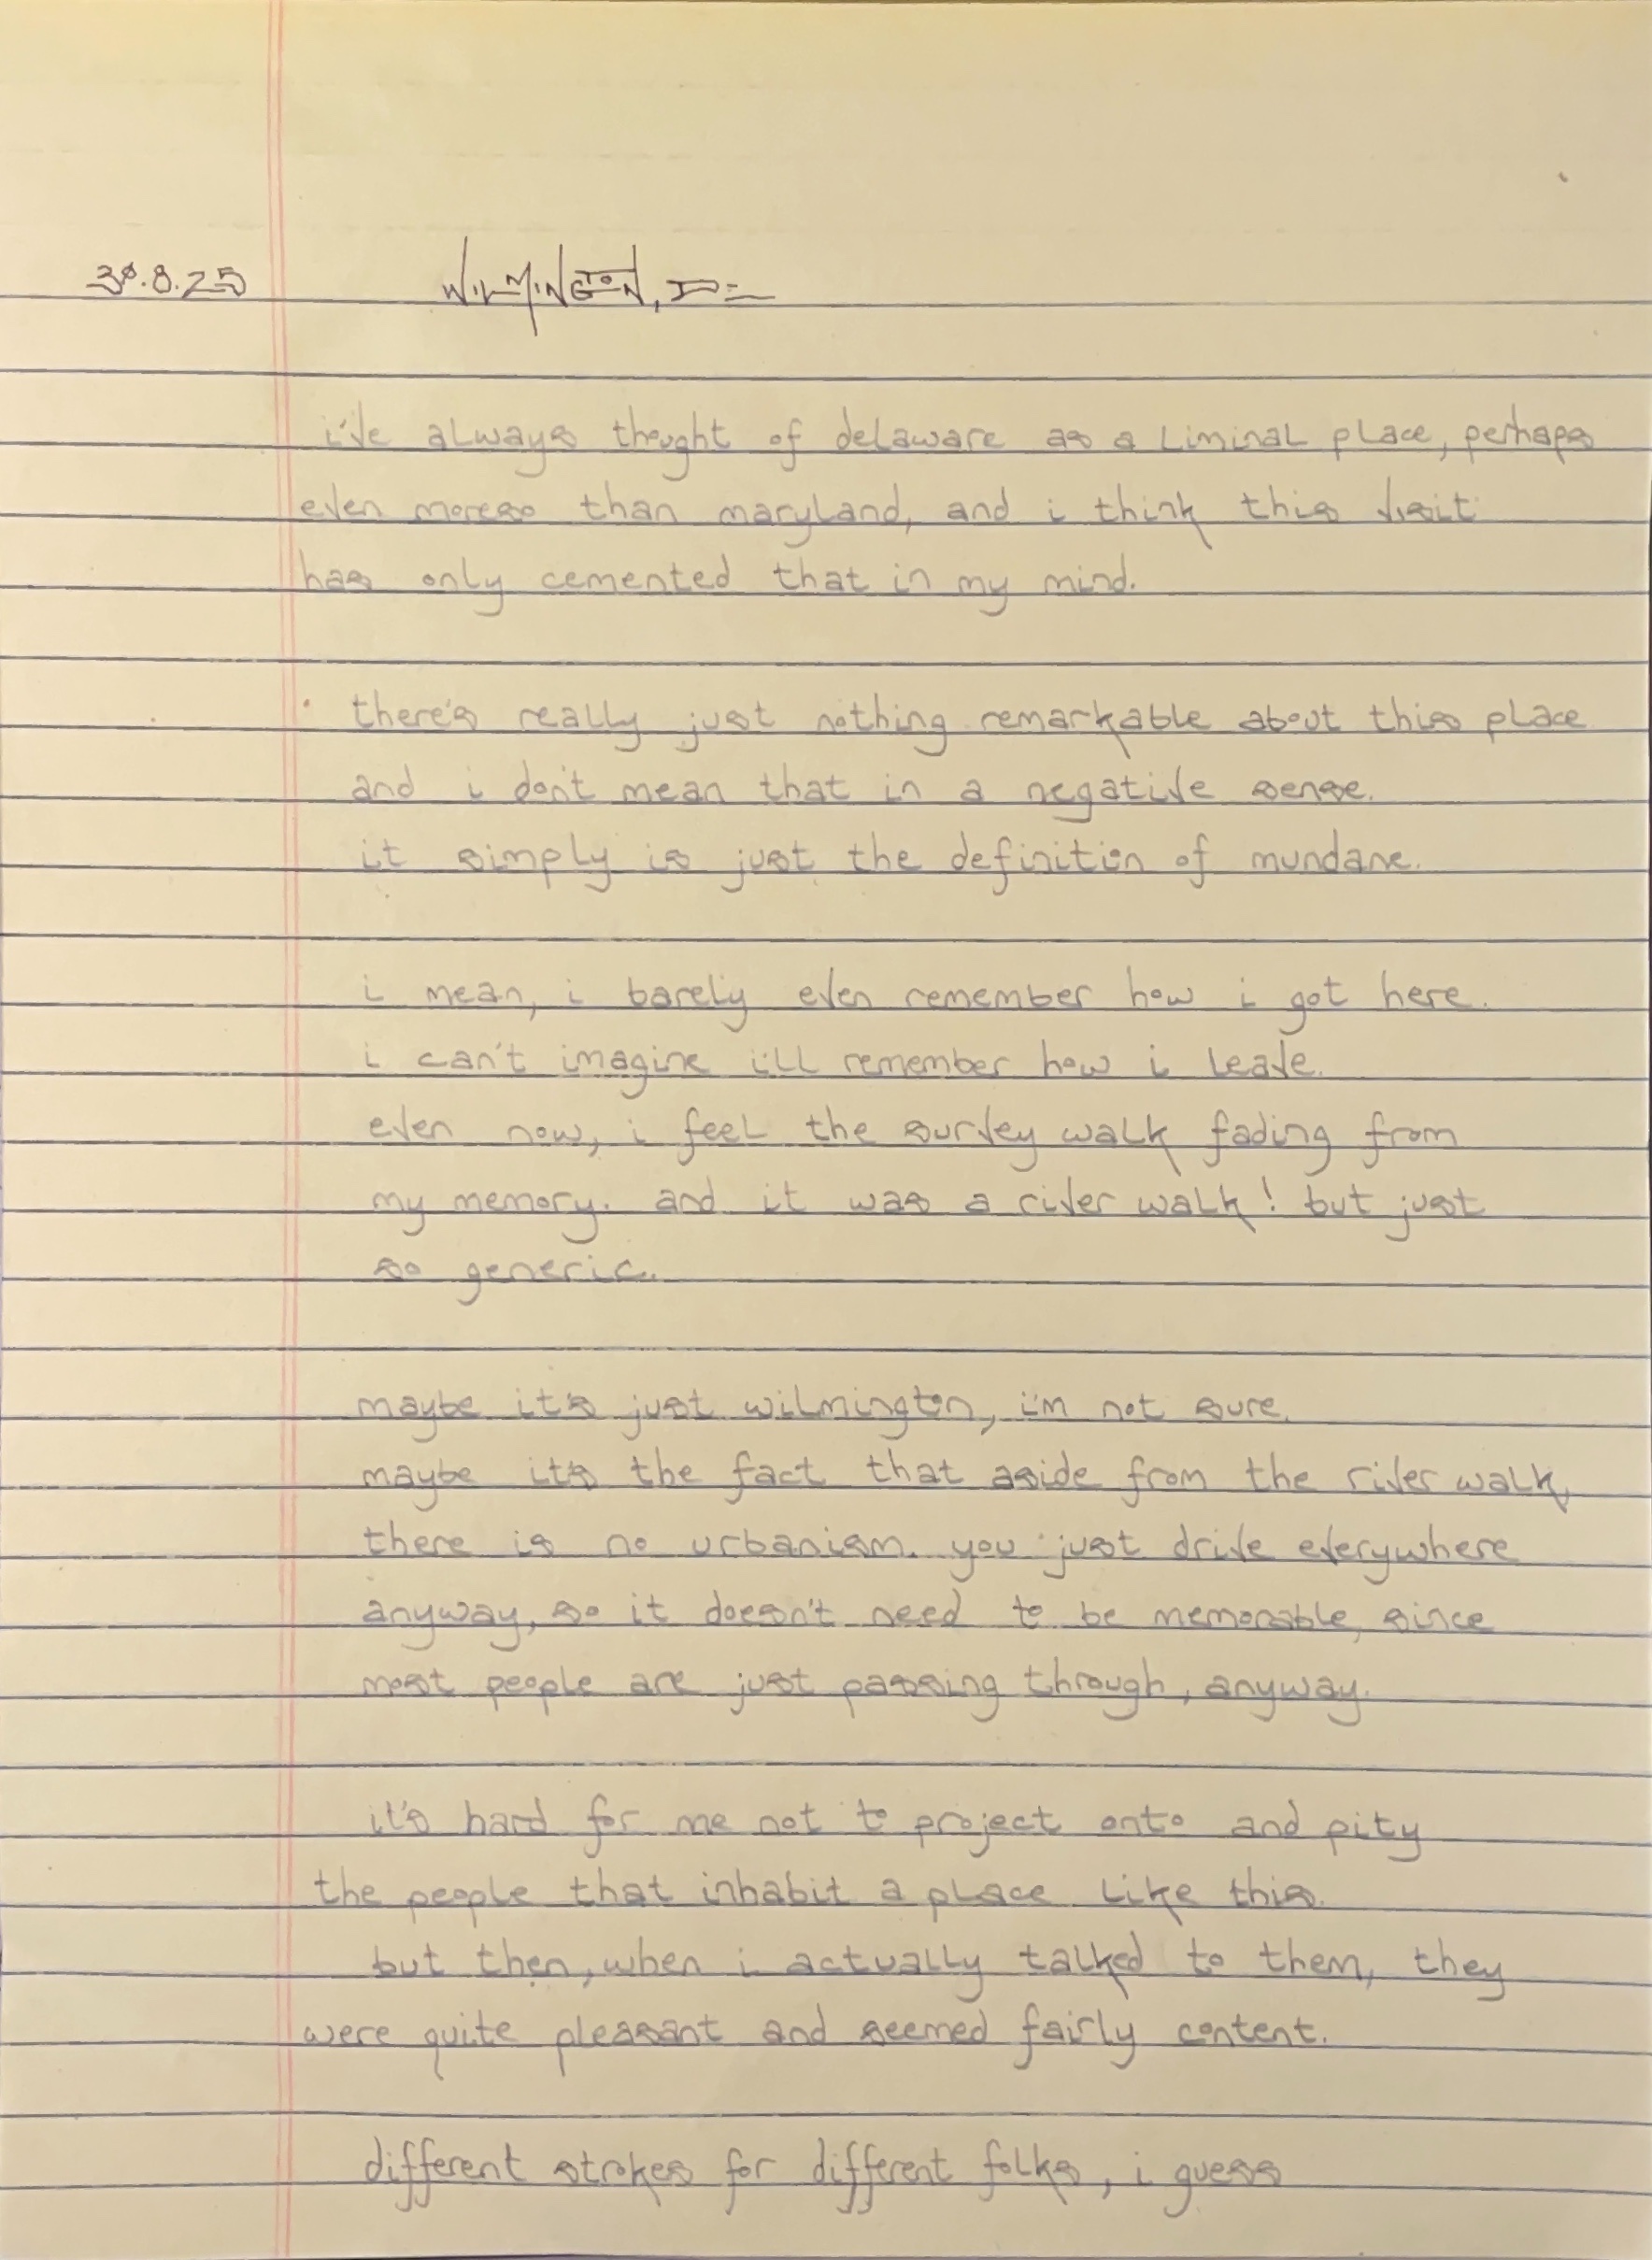 30.8.25 WILMINGTON, DE
i've always thought of delaware as a liminal place, perhaps
even moreso than maryland, and i think this visit
has only cemented that in my mind.
there's really just nothing remarkable about this place
and i don't mean that in a negative sense.
it simply is just the definition of mundane.
i mean, i barely even remember how i got here.
i can't imagine i'll remember how i leave.
even now, i feel the survey walk fading from
my memory. and it was a river walk! but just
so generic.
maybe it's just wilmington, i'm not sure.
maybe it's the fact that aside from the river walk,
there is no urbanism. you just drive everywhere
anyway, so it doesn't need to be memorable, since
most people are just passing through, anyway.
it's hard for me not to project onto and pity
the people that inhabit a place like this.
but then, when i actually talked to them, they
were quite pleasant and seemed fairly content.
different strokes for different folks, i guess